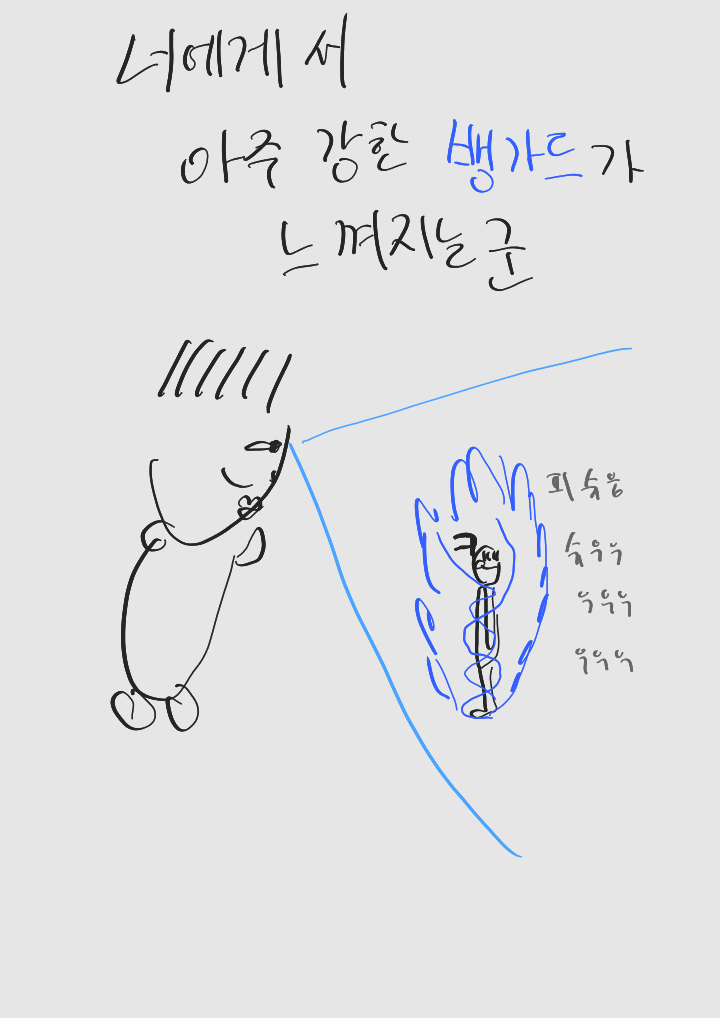 너에게서
아주 강한 뱅가드가
느껴지는군
피슉융
슉우우
우우우
우우우